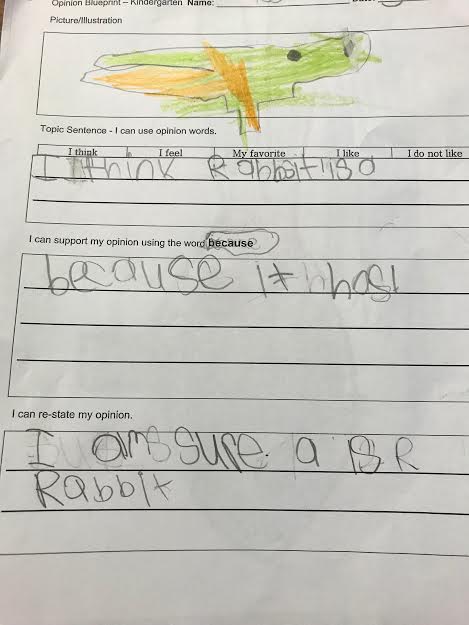 Opinion Blueprint – Kindergarten Name:
Picture/Illustration
Topic Sentence - I can use opinion words.
I think I feel My favorite I like I do not like
I think Rabbit is a
I can support my opinion using the word because
because It has
I can re-state my opinion.
I am sure. a is R
Rabbit